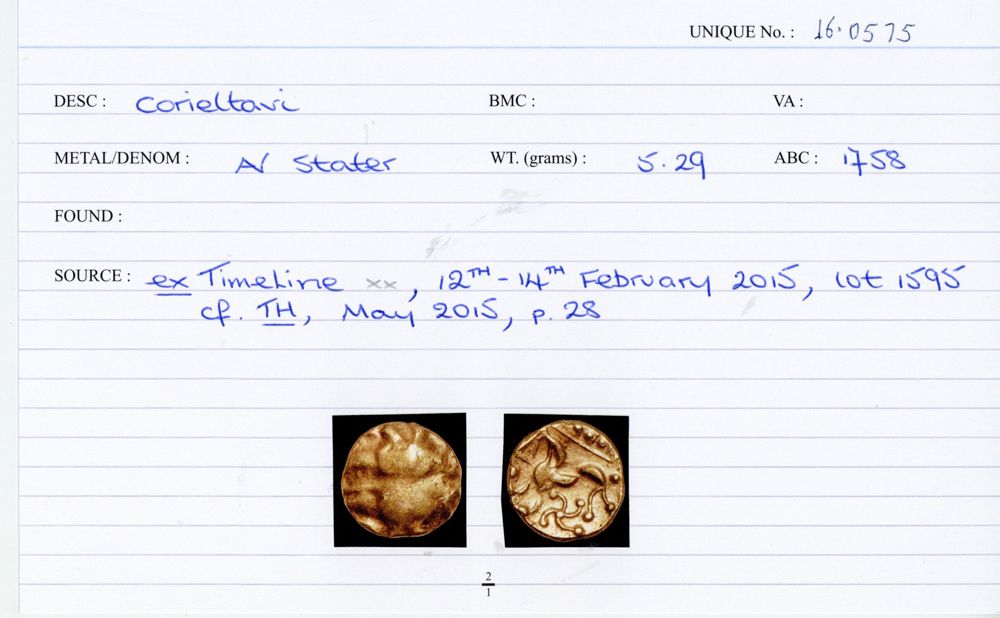 UNIQUE No. : 16.0575
DESC : Corieltavi BMC : VA :
METAL/DENOM : AV Stater WT. (grams) : 5.29 ABC : 1758
FOUND :
SOURCE : ex Timeline xx, 12TH - 14TH February 2015, lot 1595
cf. TH, May 2015, p. 28
2
1